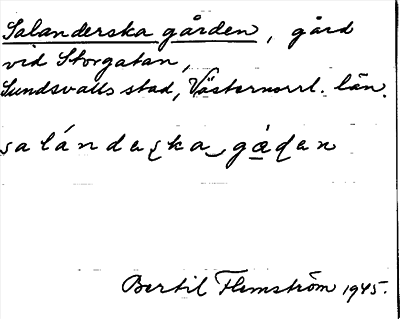 Salanderska gården, gård
vid Storgatan,
Sundsvalls stad, Västernorrl. län.
Bertil Flemström 1945.